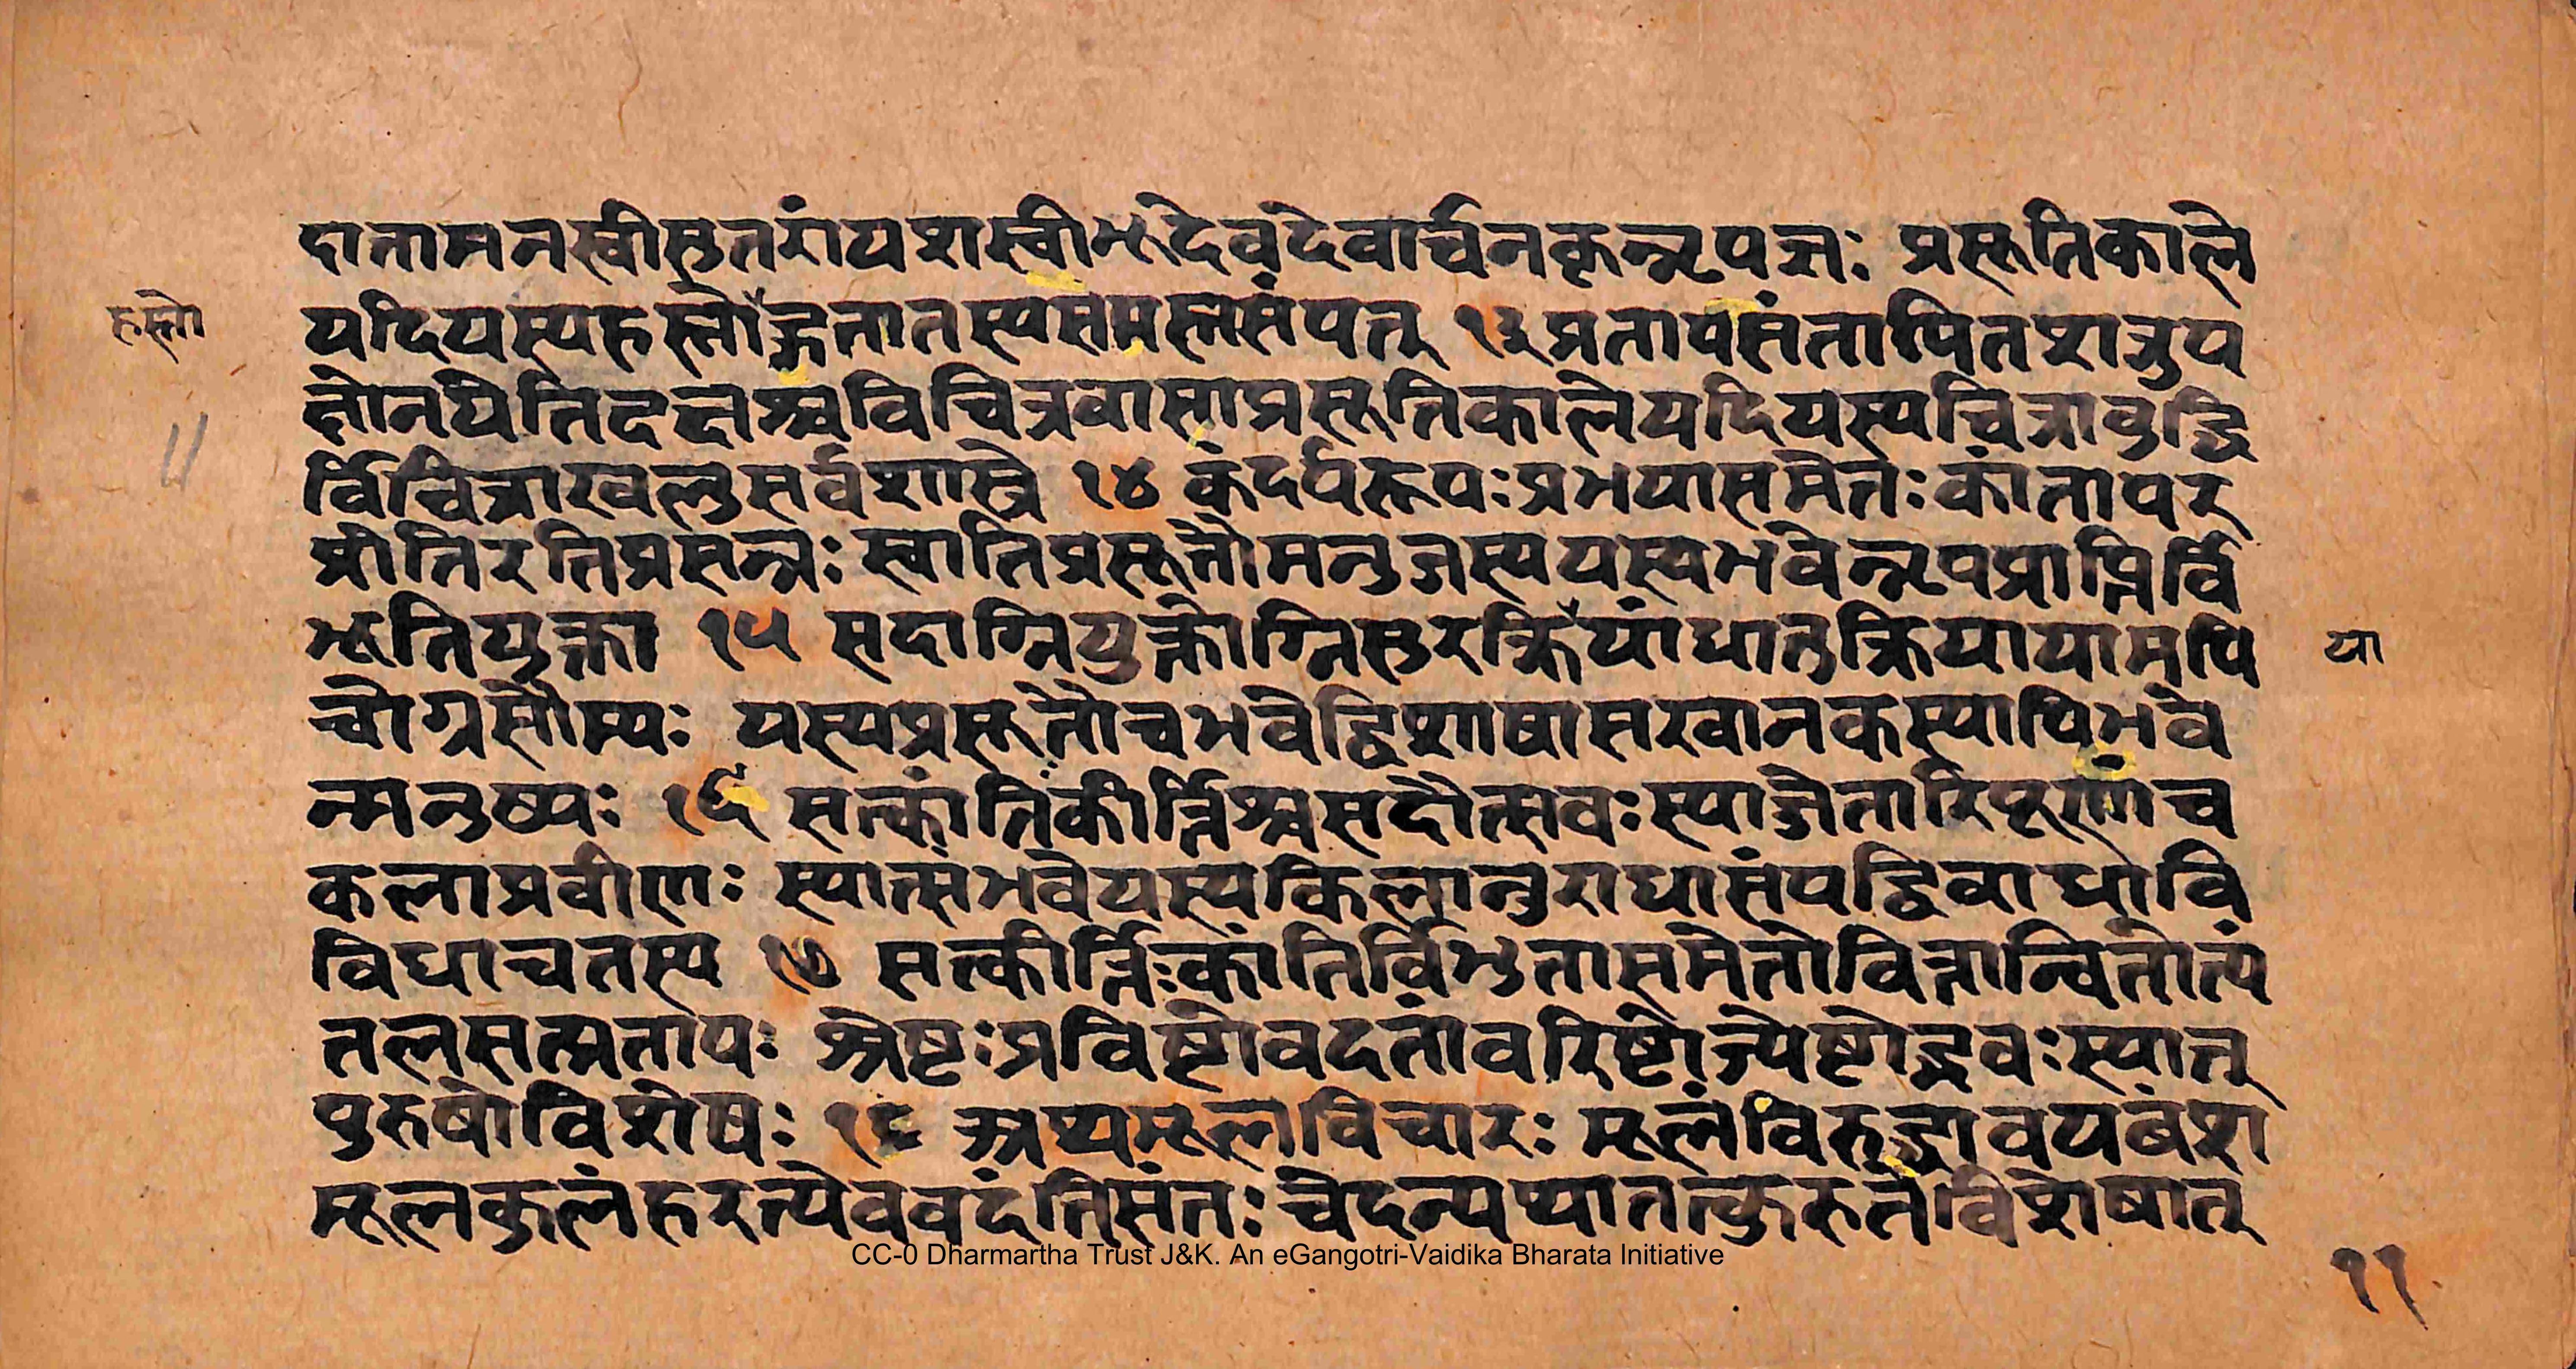 दातामनस्वीसुतरांयशस्वीभूदेवदेवार्चनकृन्नृपज्ञः प्रसूतिकाले
हस्तो
यदियस्यहस्तोद्गतातस्यसमस्तसंपत् १३ प्रतापसंतापितशत्रुप
क्षोनयेतिदक्षश्चविचित्रवासाप्रसूतिकालेयदियस्यचित्राबुद्धि
र्विचित्राखलुसर्वशास्त्रे १४ कंदर्परूपःप्रभयासमेतःकांतापर
प्रीतिरतिप्रसन्नः स्वातिप्रसूतौमनुजस्ययस्यभवेन्नृपप्राप्तिर्वि
भूतियुक्ता १५ सदाग्नियुक्तोग्निसुरक्रियांधातुक्रियायामपि
या
चोग्रसौम्यः यस्यप्रसूतौचभवेद्विशाषासखानकस्यापिभवे
न्मनुष्यः १६ सत्कांतिकीर्त्तिश्चसदोत्सवःस्याज्जेतारिपूणांच
कलाप्रवीणः स्यात्संभवेयस्यकिलानुराधासंपद्विवाधावि
विधाचतस्य १७ सत्कीर्त्तिःकांतिर्विभुतासमेतोवित्तान्वितोत्यं
तलसत्प्रतापः श्रेष्टःप्रविष्टोवदतांवरिष्टोज्येष्टोद्भवःस्यात्
पुरुषोविशेषः १८ अथमूलविचारः मूलंविरुद्धावयवंश
मूलकुलंहरत्येववदंतिसंतः चेदन्यथातत्कुरुतेविशेषात्
CC-0 Dharmartha Trust J&K. An eGangotri-Vaidika Bharata Initiative
११